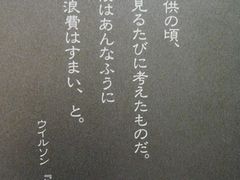 供の頃、
見るたびに考えたものだ。
はあんなふうに
浪費はすまい、と。
ウイルソン『